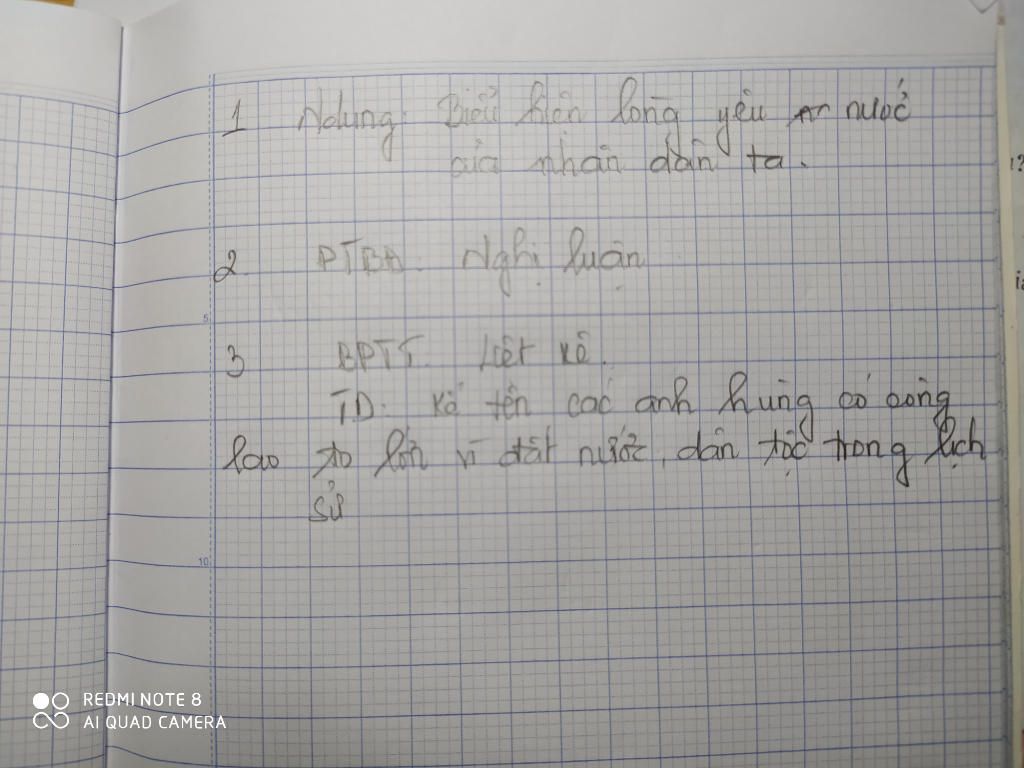 1 Ndung: Biểu hiện lòng yêu nước
của nhân dân ta.
2. PTBĐ: Nghị luận
5
3 BPTT: Liệt kê.
TD: Kể tên các anh hùng có công
lao to lớn vì đất nước, dân tộc trong lịch
sử
10
REDMI NOTE 8
AI QUAD CAMERA